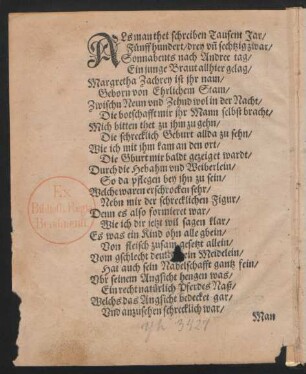 ALs man thet schreiben Tausent Jar/
Fünff hundert/ drey vñ sechtzig zwar/
Sonnabents nach Andree tag/
Ein junge Braut allhier gelag/
Margretha Zachrey ist ihr nam/
Geborn von Ehrlichem Stam/
Zwischn Neun vnd Zehnd wol in der Nacht/
Die botschafft mir ihr Mann selbst bracht/
Mich bitten thet zu ihm zu gehn/
Die schrecklich Geburt allda zu sehn/
Wie ich mit ihm kam an den ort/
Die Gburt mir bald gezeiget wardt/
Durch die Hebahm vnd Weiberlein/
So da pflegen bey ihn zu sein/
Welche waren erschrocken sehr/
Nebn mir der schrecklichen Figur/
Denn es also formieret war/
Wie ich dir jetzt wil sagen klar/
Es was ein Kind ohn alle gbein/
Von fleisch zusam gesetzt allein/
Vom gschlecht ein Meidelein/
Hat auch sein Nabelschafft gantz fein/
Vbr seinem Angsicht hengen was/
Ein recht natürlich Pferdes Naß/
Welchs das Angsicht bedecket gar/
Vnd anzusehen schrecklich war/
Man
Ex
Biblioth. Regia
Berolinensi.
Yh 3427